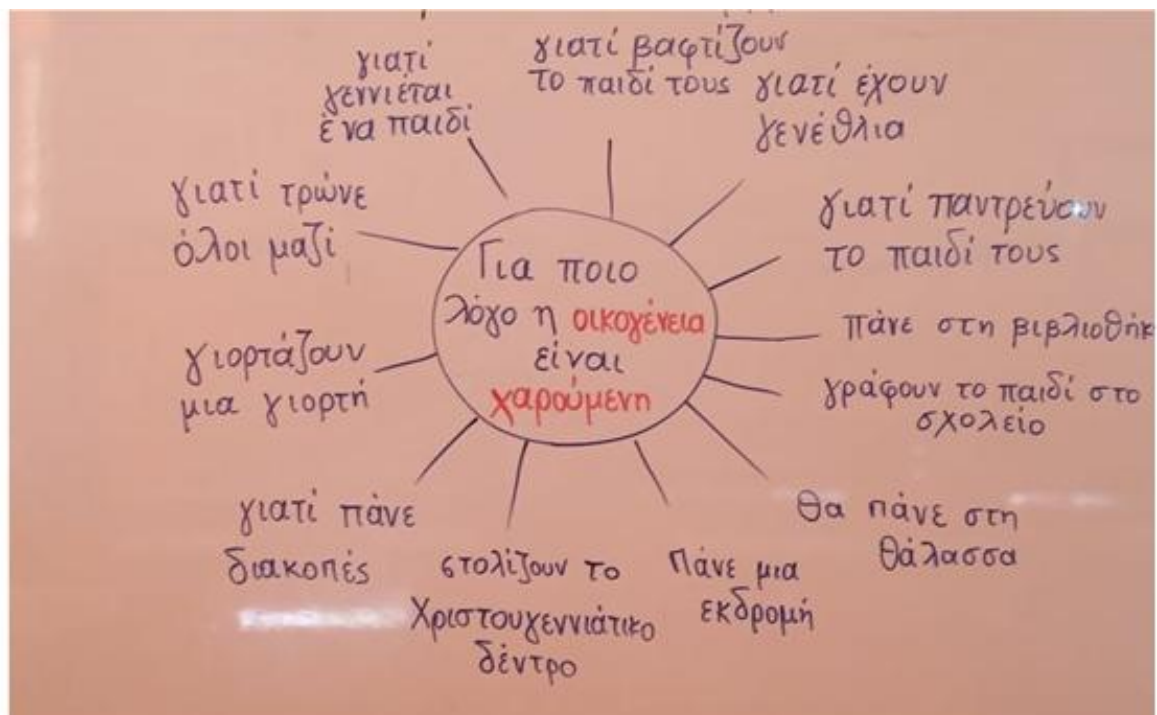 Για ποιο
λόγο η οικογένεια
είναι
χαρούμενη
γιατί
γεννιέται
ένα παιδί
γιατί βαφτίζουν
το παιδί τους
γιατί έχουν
γενέθλια
γιατί παντρεύουν
το παιδί τους
πάνε στη
γράφουν το παιδί στο
σχολείο
θα πάνε στη
θάλασσα
Πάνε μια
εκδρομή
στολίζουν το
Χριστουγεννιάτικο
δέντρο
γιατί πάνε
διακοπές
γιορτάζουν
μια γιορτή
γιατί τρώνε
όλοι μαζί